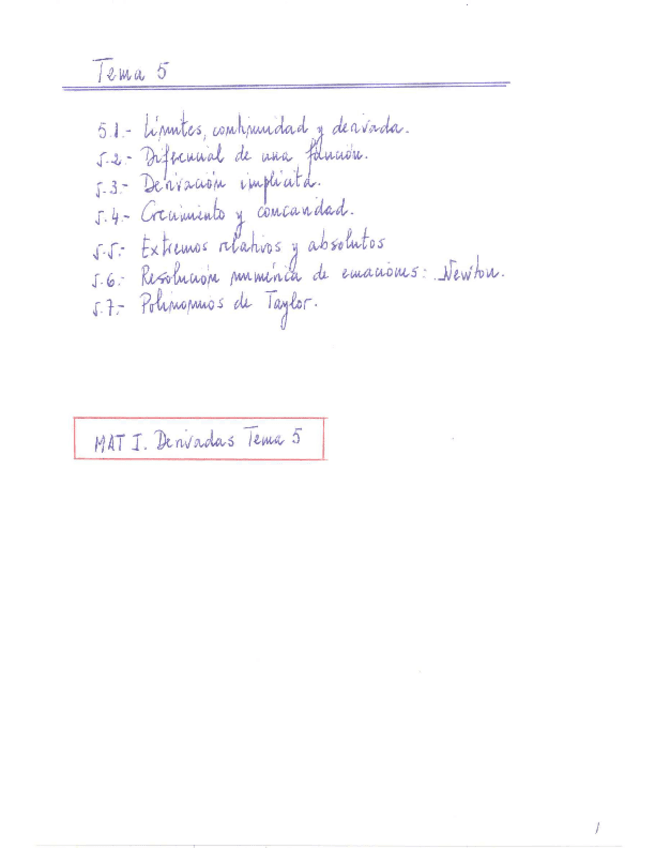 Tema 5
5.1.- Límites, continuidad y derivada.
5.2.- Diferencial de una función.
5.3.- Derivación implícita.
5.4.- Crecimiento y concavidad.
5.5.- Extremos relativos y absolutos
5.6.- Resolución numérica de ecuaciones: Newton.
5.7.- Polinomios de Taylor.
MAT I. Derivadas Tema 5
1